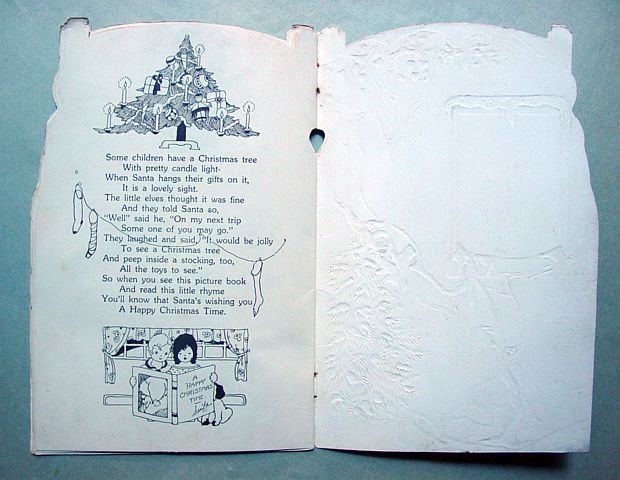 Some children have a Christmas tree
With pretty candle light-
When Santa hangs their gifts on it,
It is a lovely sight.
The little elves thought it was fine
And they told Santa so,
"Well" said he, "On my next trip
Some one of you may go."
They laughed and said, "It would be jolly
To see a Christmas tree
And peep inside a stocking, too,
All the toys to see."
So when you see this picture book
And read this little rhyme
You'll know that Santa's wishing you
A Happy Christmas Time.
A
HAPPY
CHRISTMAS
TIME